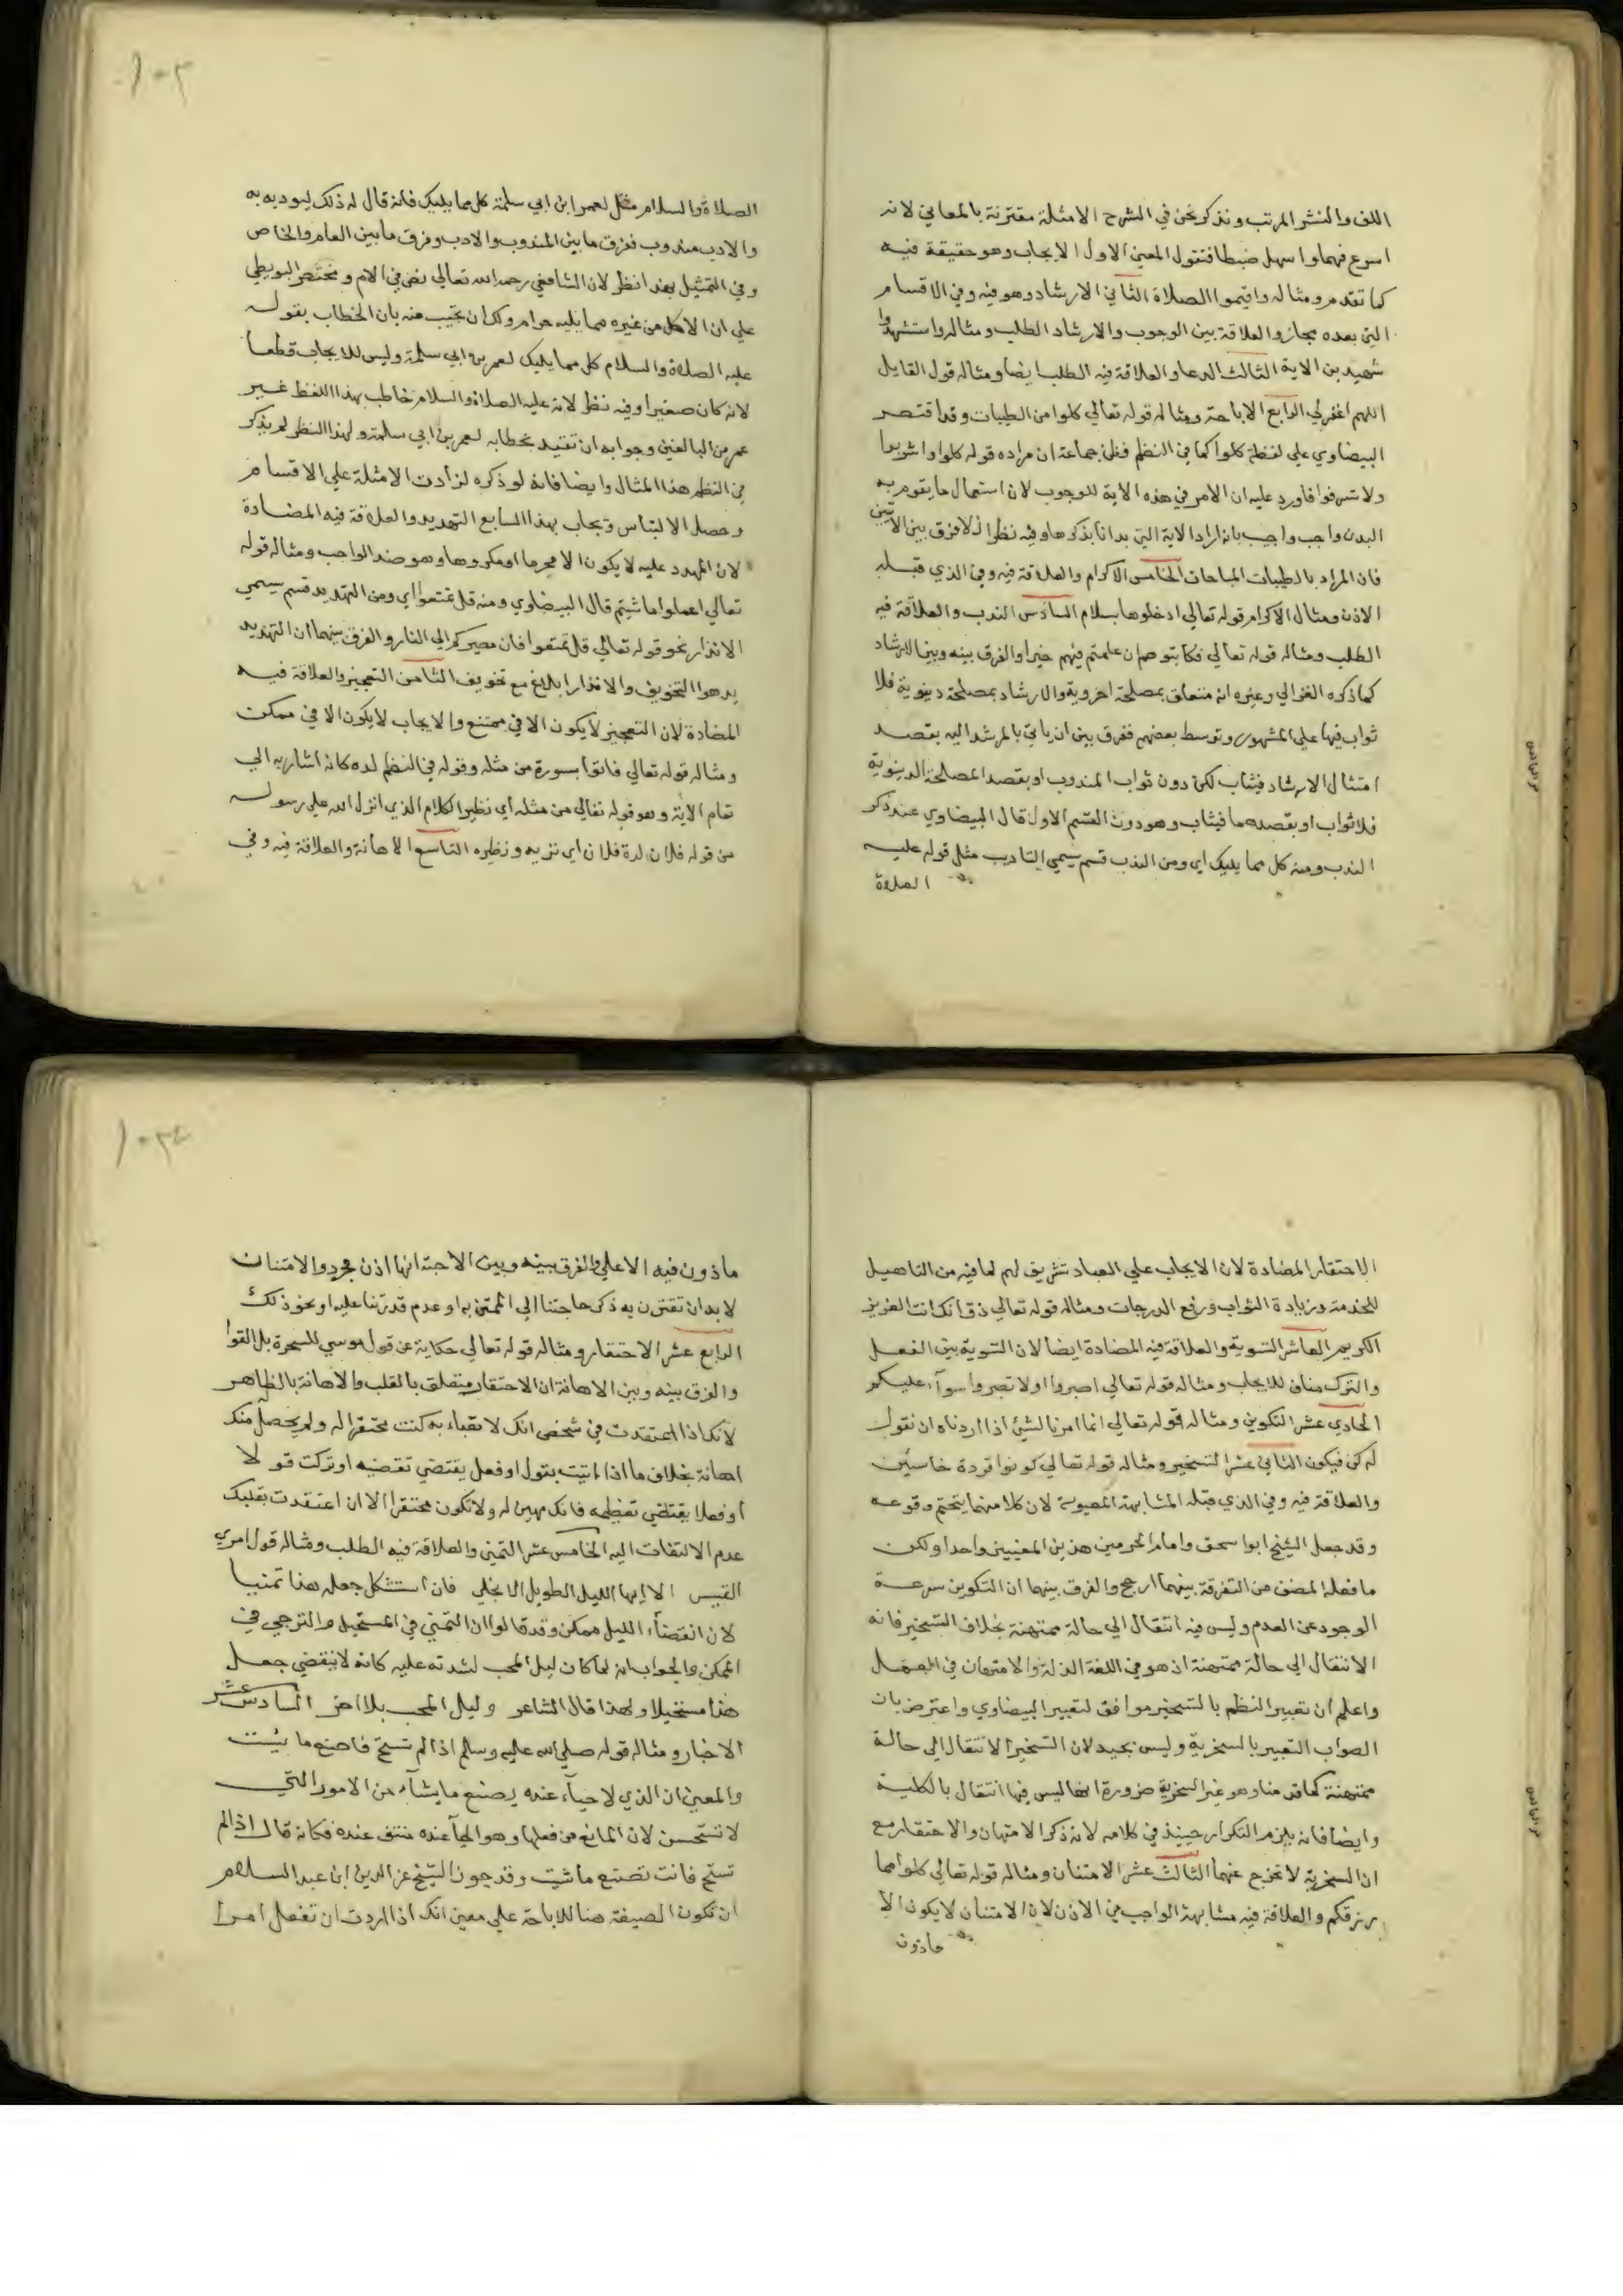 اللف والنشر المرتب ونذكر نحن في الشرح الامثلة مقترنة بالمعاني لانه
اسرع فهما واسهل ضبطا فنقول المعني الاول الايجاب وهو حقيقة فيه
كما تقدم ومثاله واقيموا الصلاة الثاني الارشاد وهو فيه وفي الاقسام
التي بعده مجاز والعلاقة بين الوجوب والارشاد الطلب ومثاله واستشهدوا
شهيدين الاية الثالث الدعا والعلاقة فيه الطلب ايضا ومثاله قول القايل
اللهم اغفر لي الرابع الاباحة ومثاله قوله تعالي كلوا من الطيبات وقد اقتصر
البيضاوي علي لفظة كلوا كما في النظم فظن جماعة ان مراده قوله كلوا واشربوا
ولا تسرفوا فاورد عليه ان الامر في هذه الاية للوجوب لان استعمال ما يقوم به
البدن واجب واجيب بانه اراد الاية التي بدانا بذكرها وفيه نظر اذ لا فرق بين الايتين
فان المراد بالطيبات المباحات الخامس الاكرام والعلاقة فيه وفي الذي قبله
الاذن ومثال الاكرام قوله تعالي ادخلوها بسلام السادس الندب والعلاقة فيه
الطلب ومثاله قوله تعالي فكاتبوهم ان علمتم فيهم خيرا والفرق بينه وبين الارشاد
كما ذكره الغزالي وغيره انه متعلق بمصلحة اخروية والارشاد بمصلحة دنيوية فلا
ثواب فيها علي المشهور وتوسط بعضهم ففرق بين ان ياتي بالمرشد اليه بقصد
امتثال الارشاد فيثاب لكن دون ثواب المندوب او بقصد المصلحة الدنيوية
فلا ثواب او بقصدهما فيثاب وهو دون القسم الاول قال البيضاوي عند ذكر
الندب ومنه كل مما يليك اي ومن الندب قسم سمي التاديب مثل قوله عليه
الصلاة
١٠٢
الصلاة والسلام مثل لعمر ابن ابي سلمة كل مما يليك فانه قال له ذلك ليودبه به
والادب مندوب ففرق ما بين المندوب والادب وفرق ما بين العام والخاص
وفي التمثيل بهذا نظر لان الشافعي رحمه الله تعالي نص في الام ومختصر البويطي
علي ان الاكل من غيره مما يليه حرام ولك ان تجيب عنه بان الخطاب بقوله
عليه الصلاة والسلام كل مما يليك لعمر بن ابي سلمة وليس للايجاب قطعا
لانه كان صغيرا وفيه نظر لانه عليه الصلاة والسلام خاطب بهذا اللفظ غير
عمر من البالغين وجوابه ان تقتيد بخطابه لعمر بن ابي سلمة ولهذا النظر لم يذكر
في النظم هذا المثال وايضا فانه لو ذكره لزادت الامثلة علي الاقسام
وحصل الالتباس ويجاب بهذا السابع التهديد والعلاقة فيه المضادة
لان المهدد عليه لا يكون الا محرما او مكروها وهو ضد الواجب ومثاله قوله
تعالي اعملوا ما شيتم قال البيضاوي ومنه قل تمتعوا اي ومن التهديد قسم سمي
الانذار نحو قوله تعالي قل تمتعوا فان مصيركم الي النار والفرق بينهما ان التهديد
يد هو التخويف والانذار ابلاغ مع تخويف الثامن التعجيز والعلاقة فيه
المضادة لان التعجيز لا يكون الا في ممتنع والايجاب لا يكون الا في ممكن
ومثاله قوله تعالي فاتوا بسورة من مثله وقوله في النظم لده كانه اشار به الي
تمام الاية وهو قوله تعالي من مثله اي نظير الكلام الذي انزل الله علي رسوله
من قوله فلان لدة فلان اي تربه ونظيره التاسع الاهانة والعلاقة فيه وفي
الاحتقار المضادة لان الايجاب علي العباد تشريف لهم لما فيه من التاهيل
للخدمة وزيادة الثواب ورفع الدرجات ومثاله قوله تعالي ذق انك انت العزيز
الكريم العاشر التسوية والعلاقة فيه المضادة ايضا لان التسوية بين الفعل
والترك مناف للايجاب ومثاله قوله تعالي اصبروا او لا تصبروا سوآء عليكم
الحادي عشر التكوين ومثاله قوله تعالي انما امرنا لشئ اذا اردناه ان نقول
له كن فيكون الثاني عشر التسخير ومثاله قوله تعالي كونوا قردة خاسئين
والعلاقة فيه وفي الذي قبله المشابهة المعنوية لان كلا منهما يتحتم وقوعه
وقد جعل الشيخ ابو اسحق وامام الحرمين هذين المعنيين واحدا ولكن
ما فعله المصنف من التفرقة بينهما ارجح والفرق بينهما ان التكوين سرعة
الوجود عن العدم وليس فيه انتقال الي حالة ممتهنة بخلاف التسخير فانه
الانتقال الي حالة ممتهنة اذ هو في اللغة الذلة والامتهان في العمل
واعلم ان تعبير النظم بالتسخير موافق لتعبير البيضاوي واعترض بان
الصواب التعبير بالسخرية وليس بجيد لان التسخير الانتقال الي حالة
ممتهنة كما قدمنا وهو غير السخرية ضرورة انها ليس فيها انتقال بالكلية
وايضا فانه يلزم التكرار حينيذ في كلامه لانه ذكر الامتهان والاحتقار مع
ان السخرية لا تخرج عنهما الثالث عشر الامتنان ومثاله قوله تعالي كلوا مما
رزقكم والعلاقة فيه مشابهة الواجب في الاذن لان الامتنان لا يكون الا
ماذون
١٠٣
ماذون فيه الاعلي والفرق بينه وبين الاحة انها اذن مجرد والامتنان
لا بد ان تقترن به ذكر حاجتنا الي الممتن به او عدم قدرتنا عليه او نحو ذلك
الرابع عشر الاحتقار ومثاله قوله تعالي حكاية عن قول موسي للسحرة بل القوا
والفرق بينه وبين الاهانة ان الاحتقار متعلق بالقلب والاهانة بالظاهر
لانك اذا اعتقدت في شخص انك لا تعباء به كنت محتقرا له ولم يحصل منك
اهانة بخلاف ما اذا اتيت بقول او فعل يقتضي تنقصه او تركت قولا
او فعلا يقتضي تعظيمه فانك مهين له ولا تكون محتقرا الا ان اعتقدت بقلبك
عدم الالتفات اليه الخامس عشر التمني والعلاقة فيه الطلب ومثاله قول امري
القيس الا ايها الليل الطويل الا انجلي فان استشكل جعله هذا تمنيا
لان انقضاء الليل ممكن وقد قالوا ان التمني في المستحيل والترجي في
الممكن والجواب انه لما كان ليل المحب لشدته عليه كانه لا ينقضي جعل
هذا مستحيلا ولهذا قال الشاعر وليل المحب بلا اخر السادس عشر
الاخبار ومثاله قوله صلي الله عليه وسلم اذا لم تستح فاصنع ما شيت
والمعني ان الذي لا حياء عنده يصنع ما يشاء من الامور التي
لا تستحسن لان المانع من فعلها وهو الحيآ عنده منتف عنده فكانه قال اذا لم
تستح فانت تصنع ما شيت وقد جوز الشيخ عز الدين ابن عبد السلام
ان تكون الصيغة هنا للاباحة علي معني انك اذا اردت ان تفعل امرا